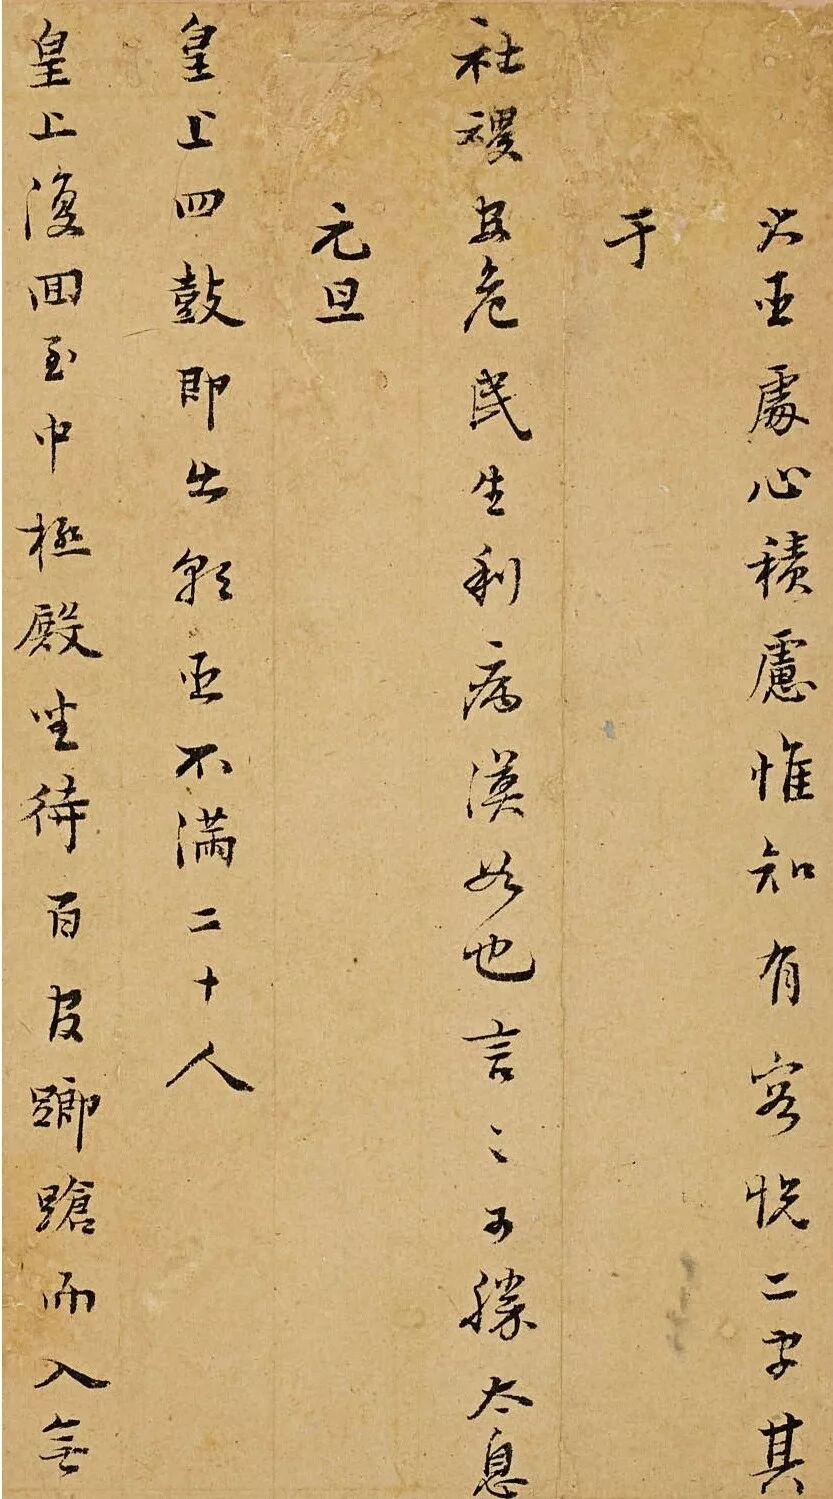 大臣處心積慮惟知有容悦二字其
于
社稷安危民生利病漠如也言之可勝太息
元旦
皇上四鼓即出朝臣不滿二十人
皇上復囬至中極殿坐待百官蹡蹌而入無